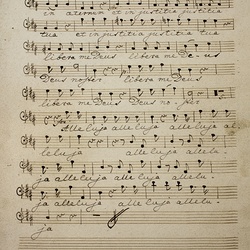 in aeternum et in justitia justitia
tua et in justitia justitia tua
libera me Deus libera me De-us
Deus noster libera me Deus
libera me Deus Deus noster
Alleluja alleluja alleluja al
leluja alleluja allelu-
ja alleluja alleluja allelu-
ja alleluja alleluja allelu-
ja